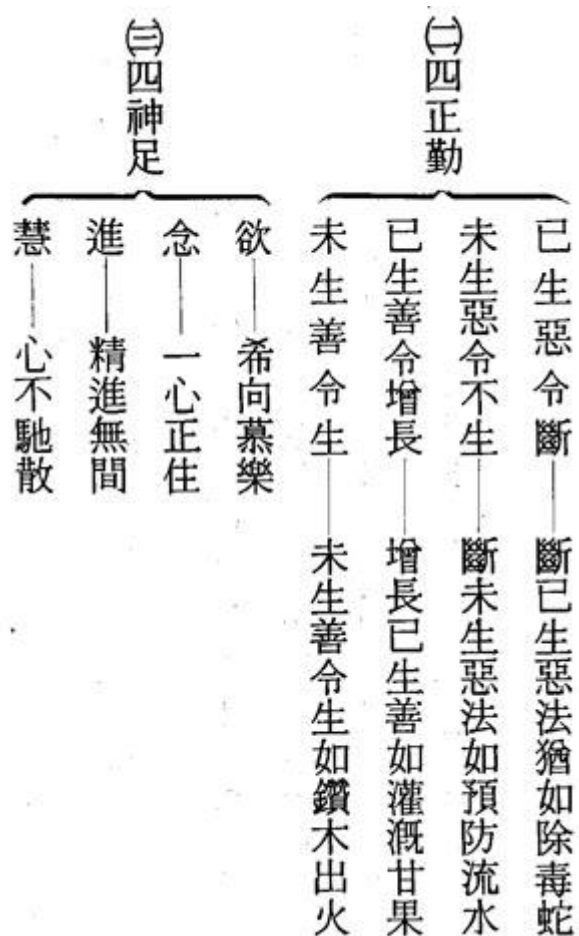 ㈡四正勤
已生惡令斷——斷已生惡法猶如除毒蛇
未生惡令不生——斷未生惡法如預防流水
已生善令增長——增長已生善如灌溉甘果
未生善令生——未生善令生如鑽木出火
㈢四神足
欲——希向慕樂
念——一心正住
進——精進無間
慧——心不馳散